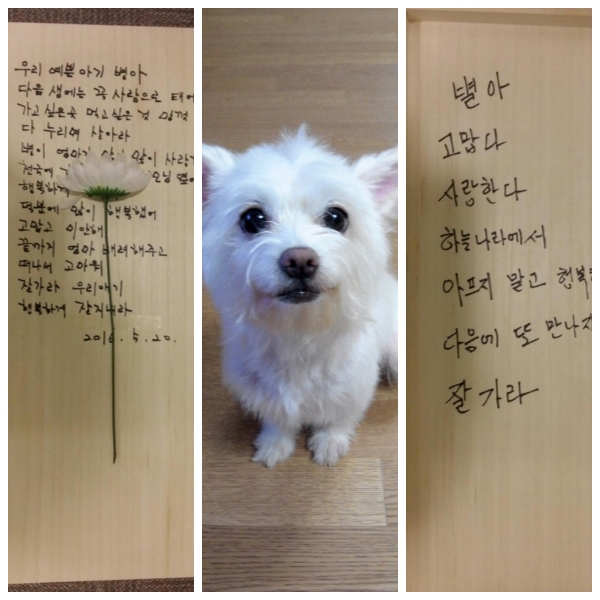 우리 예쁜 아기 별아
다음 생에는 꼭 사람으로
가고싶은곳 먹고싶은 것
다 누리며 살아라
별이 엄마가 많이
천국에
행복하게
덕분에 많이 행복했어
고맙고 미안해
끝까지 엄마 배려해주고
떠나서 고마워
잘가라 우리애기
행복하게 잘지내라
2016. 5. 20.
별아
고맙다
사랑한다
하늘나라에서
아프지 말고
다음에 또 만나자
잘가라